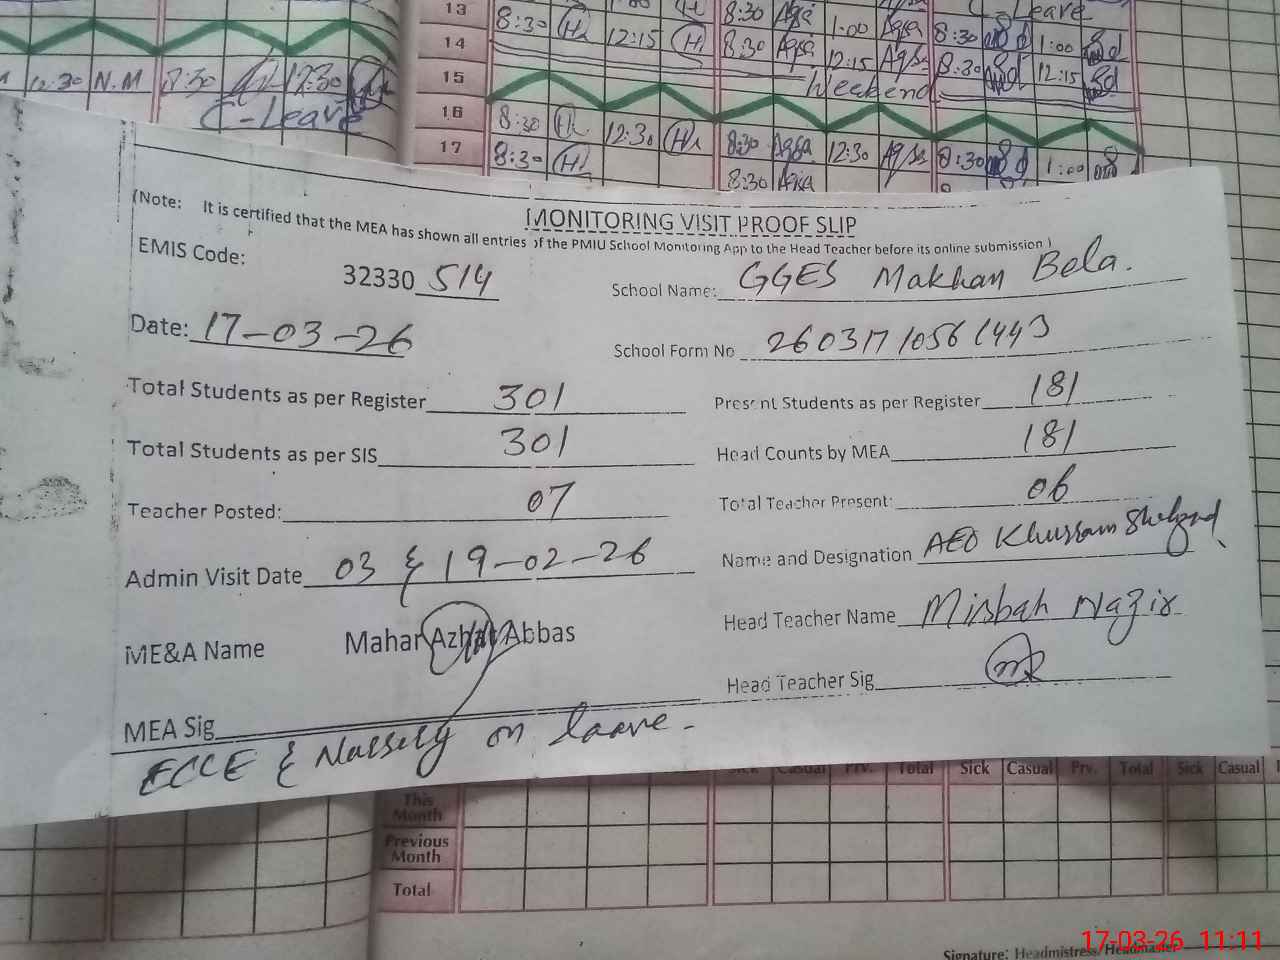 13
8:30 12:15 8:30 Aqsa 1:00 Aqsa 8:30 1:00
C-Leave
14
8:30 Aqsa 12:15 Aqsa 8:30 12:15
15
Weekend
12:30 N.M 8:30 12:30
C-Leave
16
8:30 12:30 8:30 Aqsa 12:30 Aqsa 8:30 1:00
17
8:30 8:30 Aqsa
MONITORING VISIT PROOF SLIP
(Note: It is certified that the MEA has shown all entries of the PMIU School Monitoring App to the Head Teacher before its online submission )
EMIS Code: 32330 514
School Name: GGES Makhan Bela.
Date: 17-03-26
School Form No 26031710561443
Total Students as per Register 301
Present Students as per Register 181
Total Students as per SIS 301
Head Counts by MEA 181
Teacher Posted: 07
Total Teacher Present: 06
Admin Visit Date 03 & 19-02-26
Name and Designation AEO Khurram Shahzad
ME&A Name Mahar Azhar Abbas
Head Teacher Name Misbah Nazir
Head Teacher Sig
MEA Sig
ECCE & Nursery on leave.
Sick Casual Prv. Total Sick Casual Prv. Total Sick Casual
This Month
Previous Month
Total
Signature: Headmistress/Headmaster
17-03-26 11:11